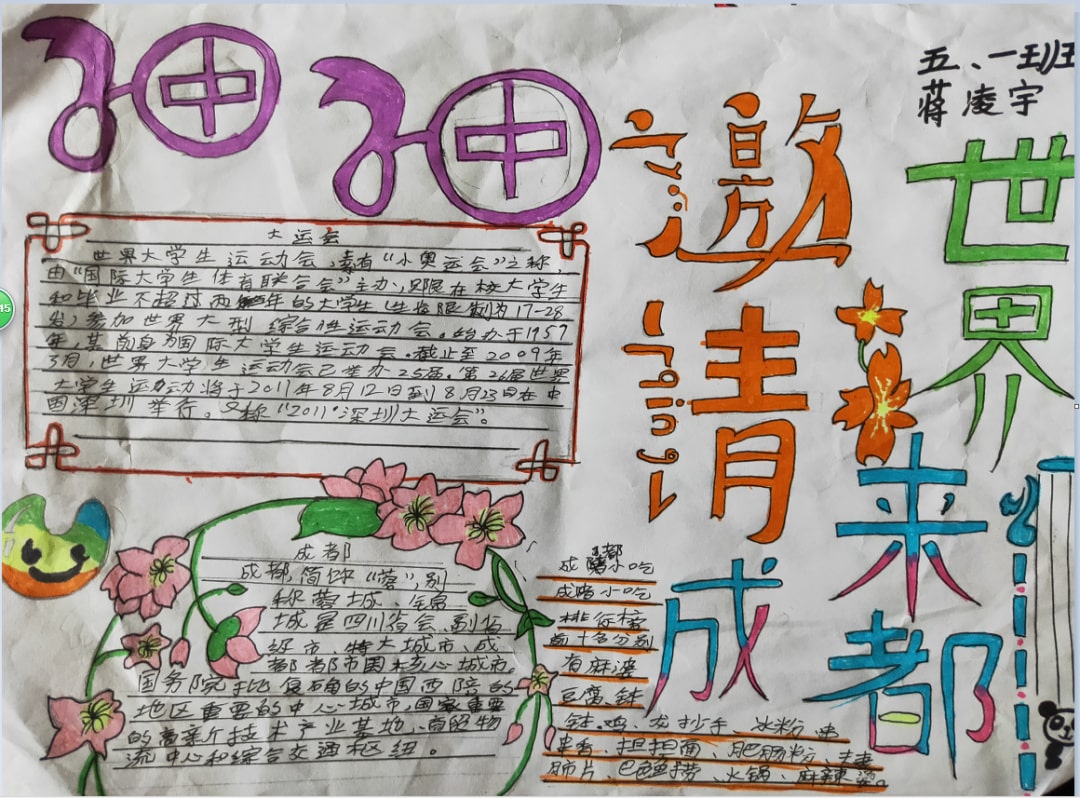 神 神
五、一班
蒋凌宇
邀请
世界
来
成都
大运会
世界大学生运动会,素有“小奥运会”之称,
由“国际大学生体育联合会”主办,只限在校大学生
和毕业不超过两年的大学生(年龄限制为17-28
岁)参加世界大型综合性运动会。始办于1957
年,其前身为国际大学生运动会。截止至2009年
3月,世界大学生运动会已举办25届。第26届世界
大学生运动动将于2011年8月12日到8月23日在中
国深圳举行。又称“2011·深圳大运会”。
成都
成都,简称“蓉”,别
称蓉城、
城是四川省会、副省
级市、特大城市、成
都都市圈核心城市。
国务院批复确的中国西陪的
地区重要的中心城市,国家重要
的高新斤技术产业基地、商贸物
流中心和综合交通枢纽。
成都小吃
成都小吃
排行榜
前十名分别
有麻婆
豆腐、钵
钵鸡、龙抄手、冰粉、串
串香、担担面、肥肠粉、夫妻
肺片、火锅、麻辣烫。
45